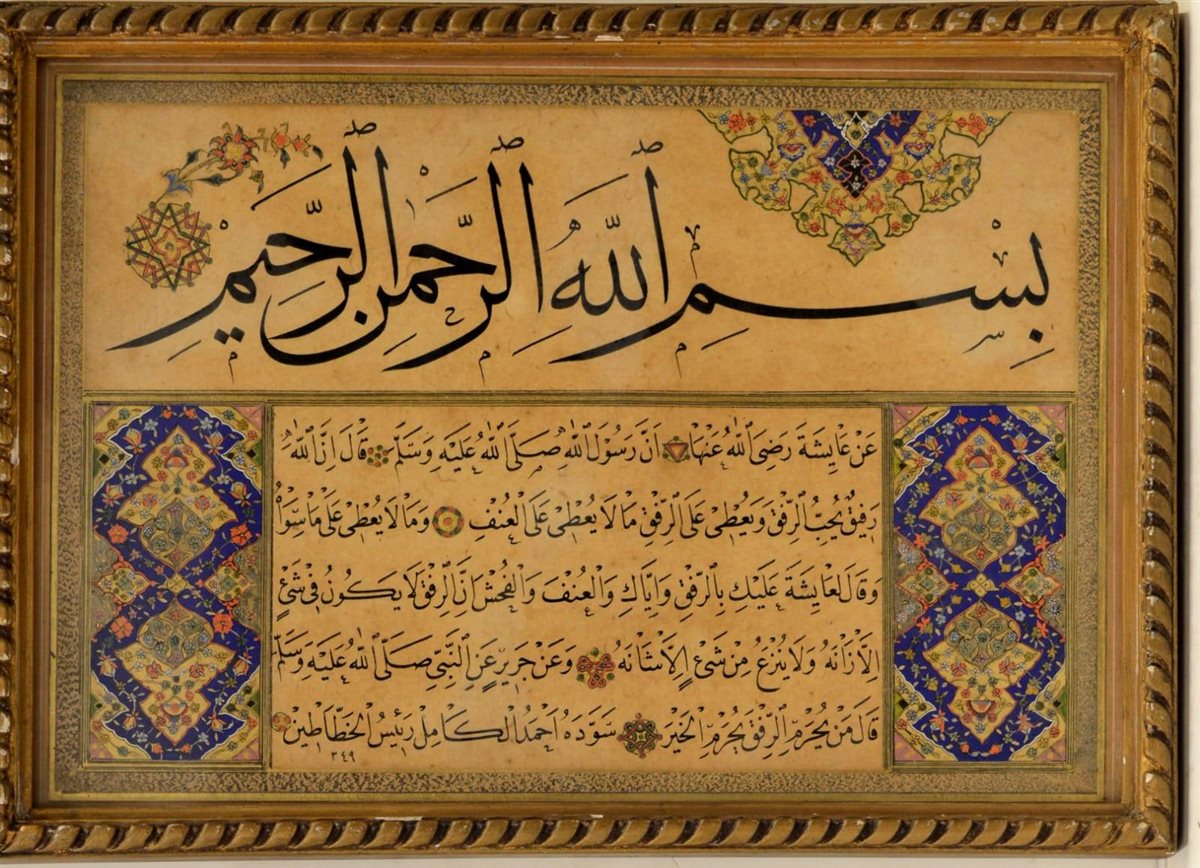 بِسْمِ اللَّهِ الرَّحْمٰنِ الرَّحِيمِ
عَنْ عَايِشَةَ رَضِيَ اللّٰهُ عَنْهَا اَنَّ رَسُولَ اللّٰهِ صَلَّى اللّٰهُ عَلَيْهِ وَسَلَّمَ قَالَ اِنَّ اللّٰهَ
رَفِيقٌ يُحِبُّ الرِّفْقَ وَيُعْطِى عَلَى الرِّفْقِ مَالَا يُعْطِى عَلَى الْعُنْفِ وَمَالَا يُعْطِى عَلَى مَاسِوَاهُ
وَقَالَ لِعَايِشَةَ عَلَيْكِ بِالرِّفْقِ وَاِيَّاكِ وَالْعُنْفَ وَالْفُحْشَ اِنَّ الرِّفْقَ لَا يَكُونُ فِى شَىْءٍ
اِلَّا زَانَهُ وَلَا يُنْزَعُ مِنْ شَىْءٍ اِلَّا شَانَهُ وَعَنْ جَرِيرٍ عَنِ النَّبِىِّ صَلَّى اللّٰهُ عَلَيْهِ وَسَلَّمَ
قَالَ مَنْ يُحْرَمِ الرِّفْقَ يُحْرَمِ الْخَيْرَ سَوَّدَهُ اَحْمَدُ الْكَامِلْ رَئِيسُ الْخَطَّاطِينْ
٣٤٩